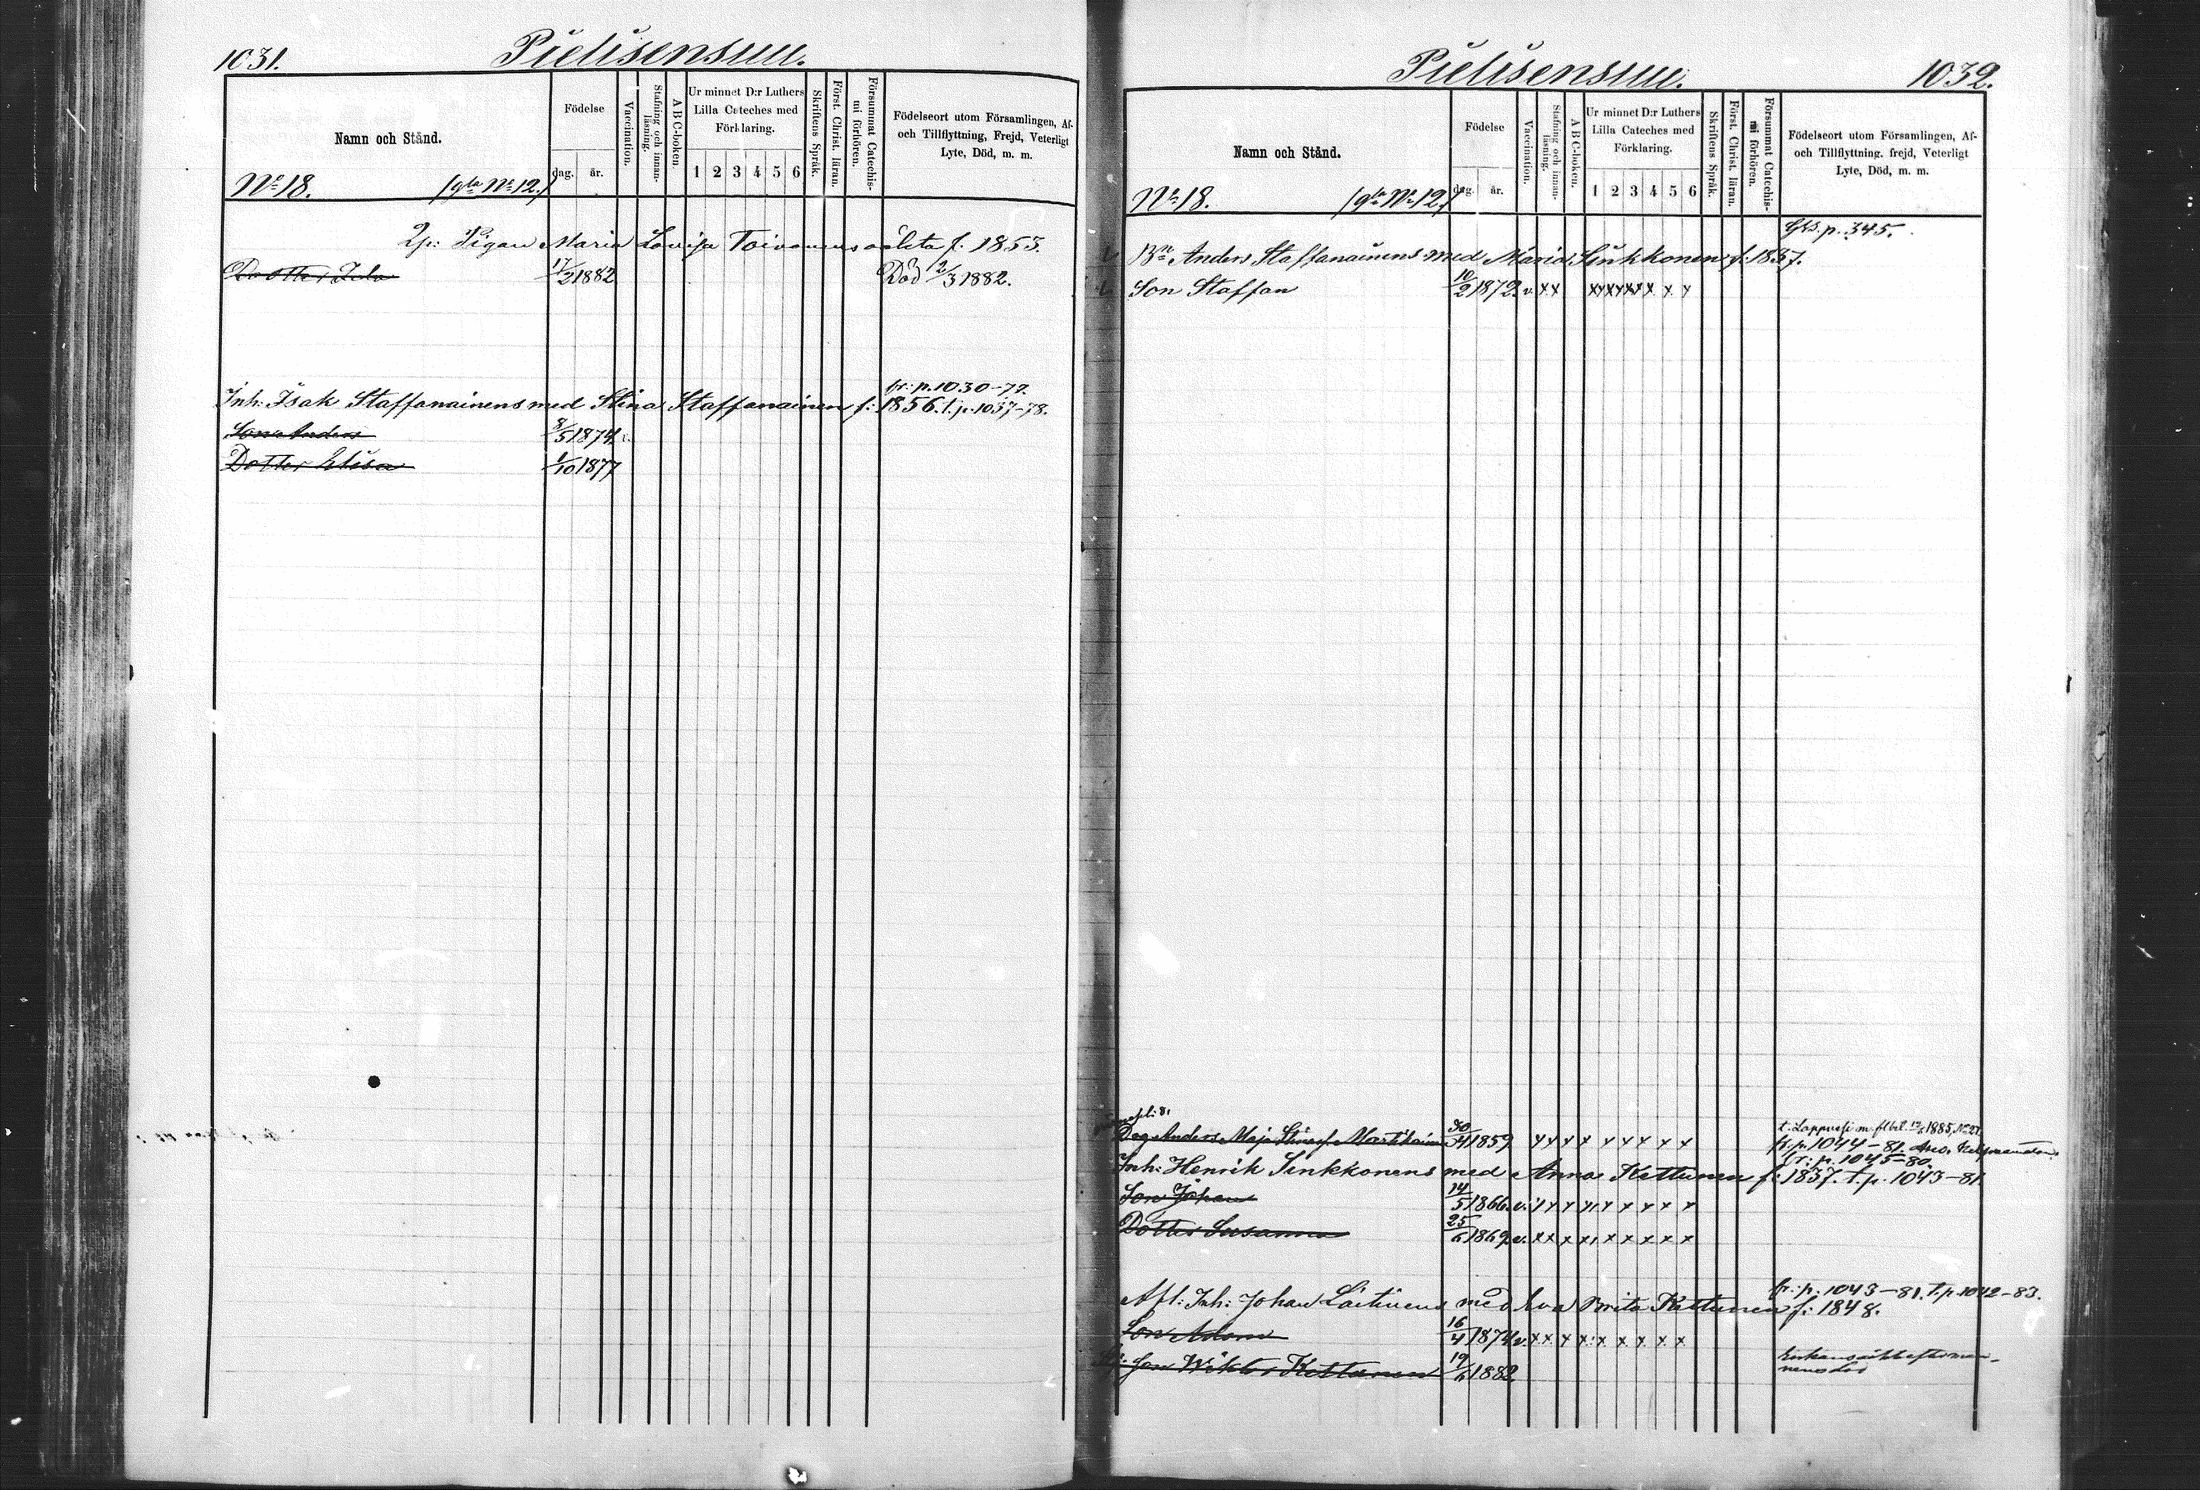 1031.
Pielisensuu.
Namn och Stånd.
Födelse
dag. år.
Vaccination.
Stafning och innanläsning.
A B C-boken.
Ur minnet D:r Luthers
Lilla Cateches med
Förklaring.
1 2 3 4 5 6
Skriftens Språk.
Först. Christ. läran.
Försummat Catechismi förhören.
Födelseort utom Församlingen, Af-
och Tillflyttning, Frejd, Veterligt
Lyte, Död, m. m.
No 18. (gla No 12.)
Lp: Pigan Maria Lovisa Toivonens oäkta f: 1853.
Dotter 17/2 1882 Död 12/3 1882.
fr: p. 1030-77.
Inh: Isak Staffanainens med Stina Staffanainen f: 1856. t. p. 1037-78.
Son Anders 8/5 1874 v.
Dotter Elisa 1/10 1877
Pielisensuu.
1032.
Namn och Stånd.
Födelse
dag. år.
Vaccination.
Stafning och innanläsning.
A B C-boken.
Ur minnet D:r Luthers
Lilla Cateches med
Förklaring.
1 2 3 4 5 6
Skriftens Språk.
Först. Christ. läran.
Försummat Catechismi förhören.
Födelseort utom Församlingen, Af-
och Tillflyttning. frejd, Veterligt
Lyte, Död, m. m.
No 18. (gla No 12.)
p. 345.
Bn: Anders Staffanainens med Maria Sinkkonen f: 1837.
Son Staffan 10/2 1872. v. x x x x x x x x x x
t. Lappvesi m. flbt. 1885, No 27.
Anders Maja Martikainen 30/ 1859 x x x x x x x x
fr. p. 1044-81.
fr: p. 1045-80.
Inh: Henrik Sinkkonens med Anna Kettunen f: 1837. t. p. 1043-81.
Son Johan 14/5 1866. v. x x x x x x x x x
Dotter Susanna 25/6 1869. v. x x x x x x x x x
fr: p: 1043-81. t. p. 1042-83.
Afl: Inh: Johan med Eva Brita Kettunen f: 1848.
Son Adam 16/4 1874 v. x x x x x x x x x
Son Wiktor Kettunen 19/6 1882.